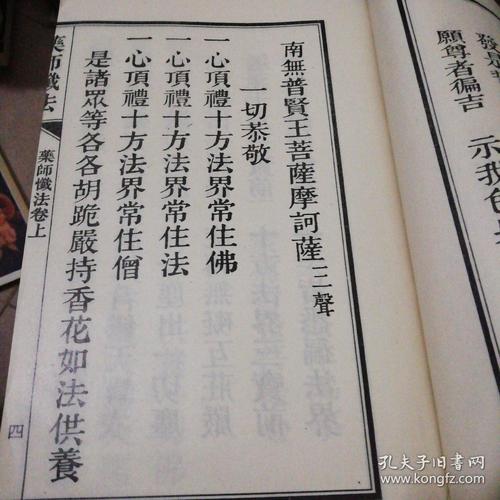 願尊者徧吉 示我
南無普賢王菩薩摩訶薩三聲
一切恭敬
一心頂禮十方法界常住佛
一心頂禮十方法界常住法
一心頂禮十方法界常住僧
是諸眾等各各胡跪嚴持香花如法供養
藥師懺法
藥師懺法卷上
四
孔夫子旧书网
www.kongfz.com